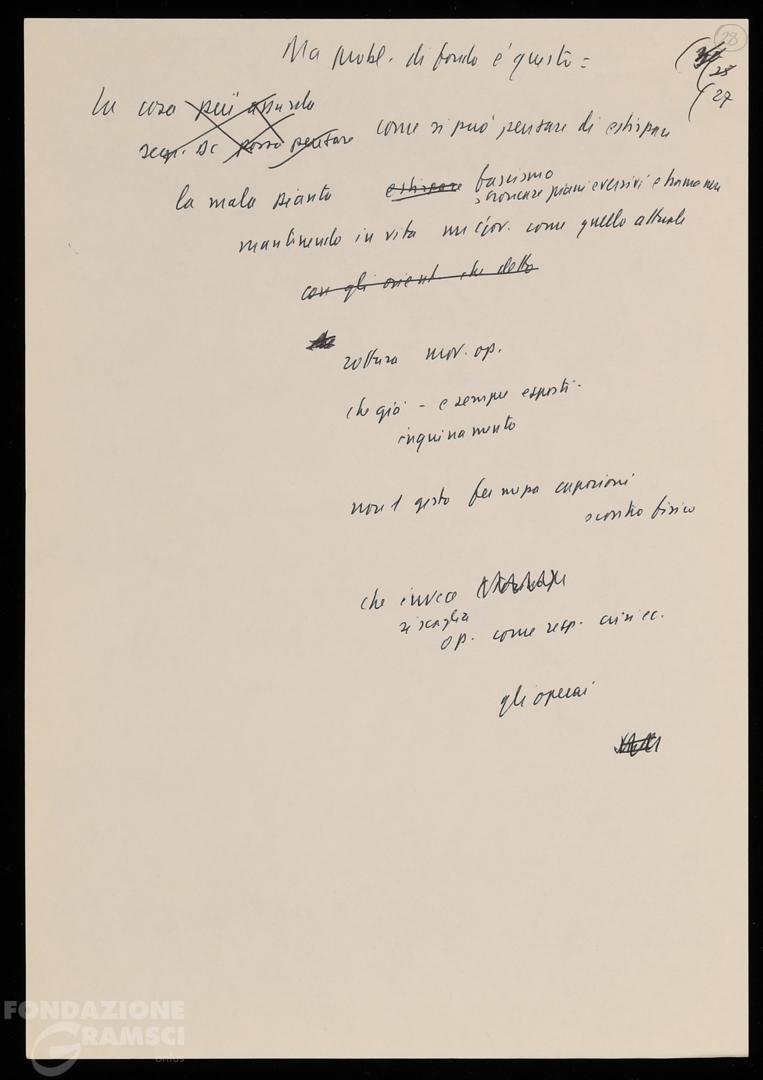 28
Ma probl. di fondo è questo =
28
27
La cosa più assurda
segr. DC possa pensare come si può pensare di estirpare
la mala pianta estirpare fascismo
stroncare piani eversivi e trame nere
mantenendo in vita un Gov. come quello attuale
con gli orient. che detto
rottura mov. op.
che già - e sempre esposti -
inquinamento
non 1 gesto per
scontro fisico
che invece
si scaglia
op. come resp. crisi ec.
gli operai
FONDAZIONE
GRAMSCI
onlus